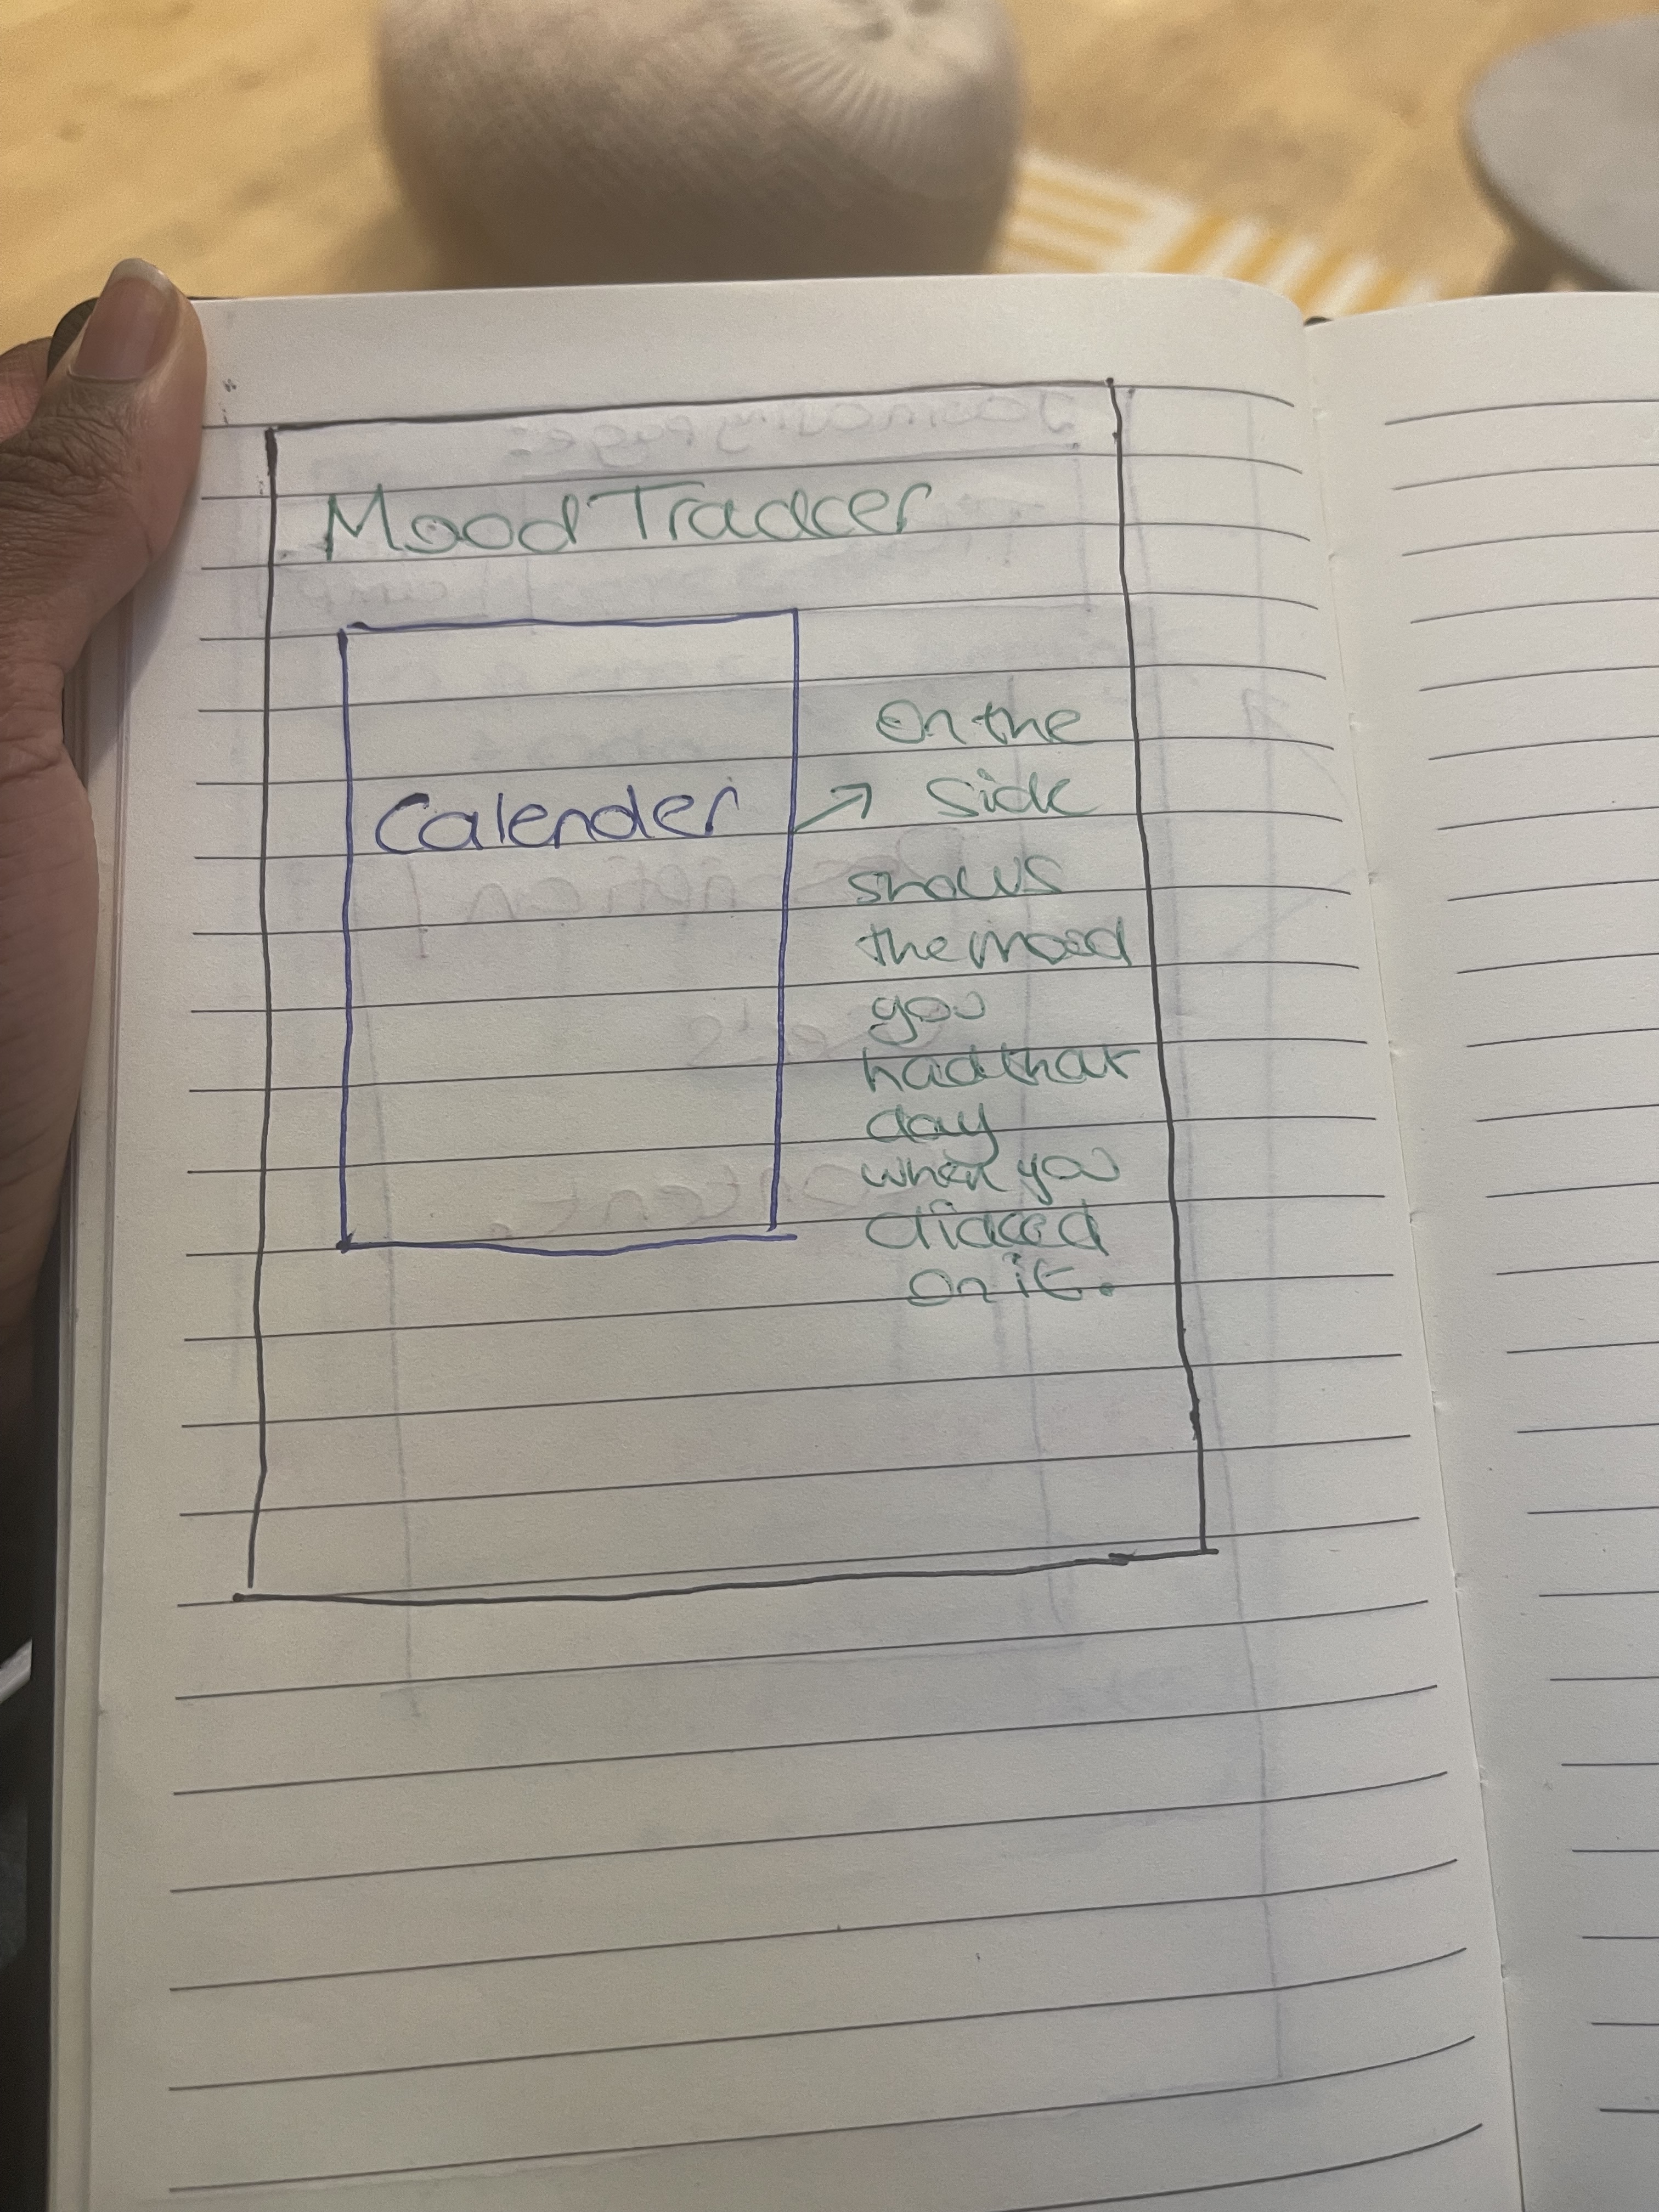 Mood Tracker
Calender
On the
side
shows
the mood
you
had that
day
when you
clicked
on it.